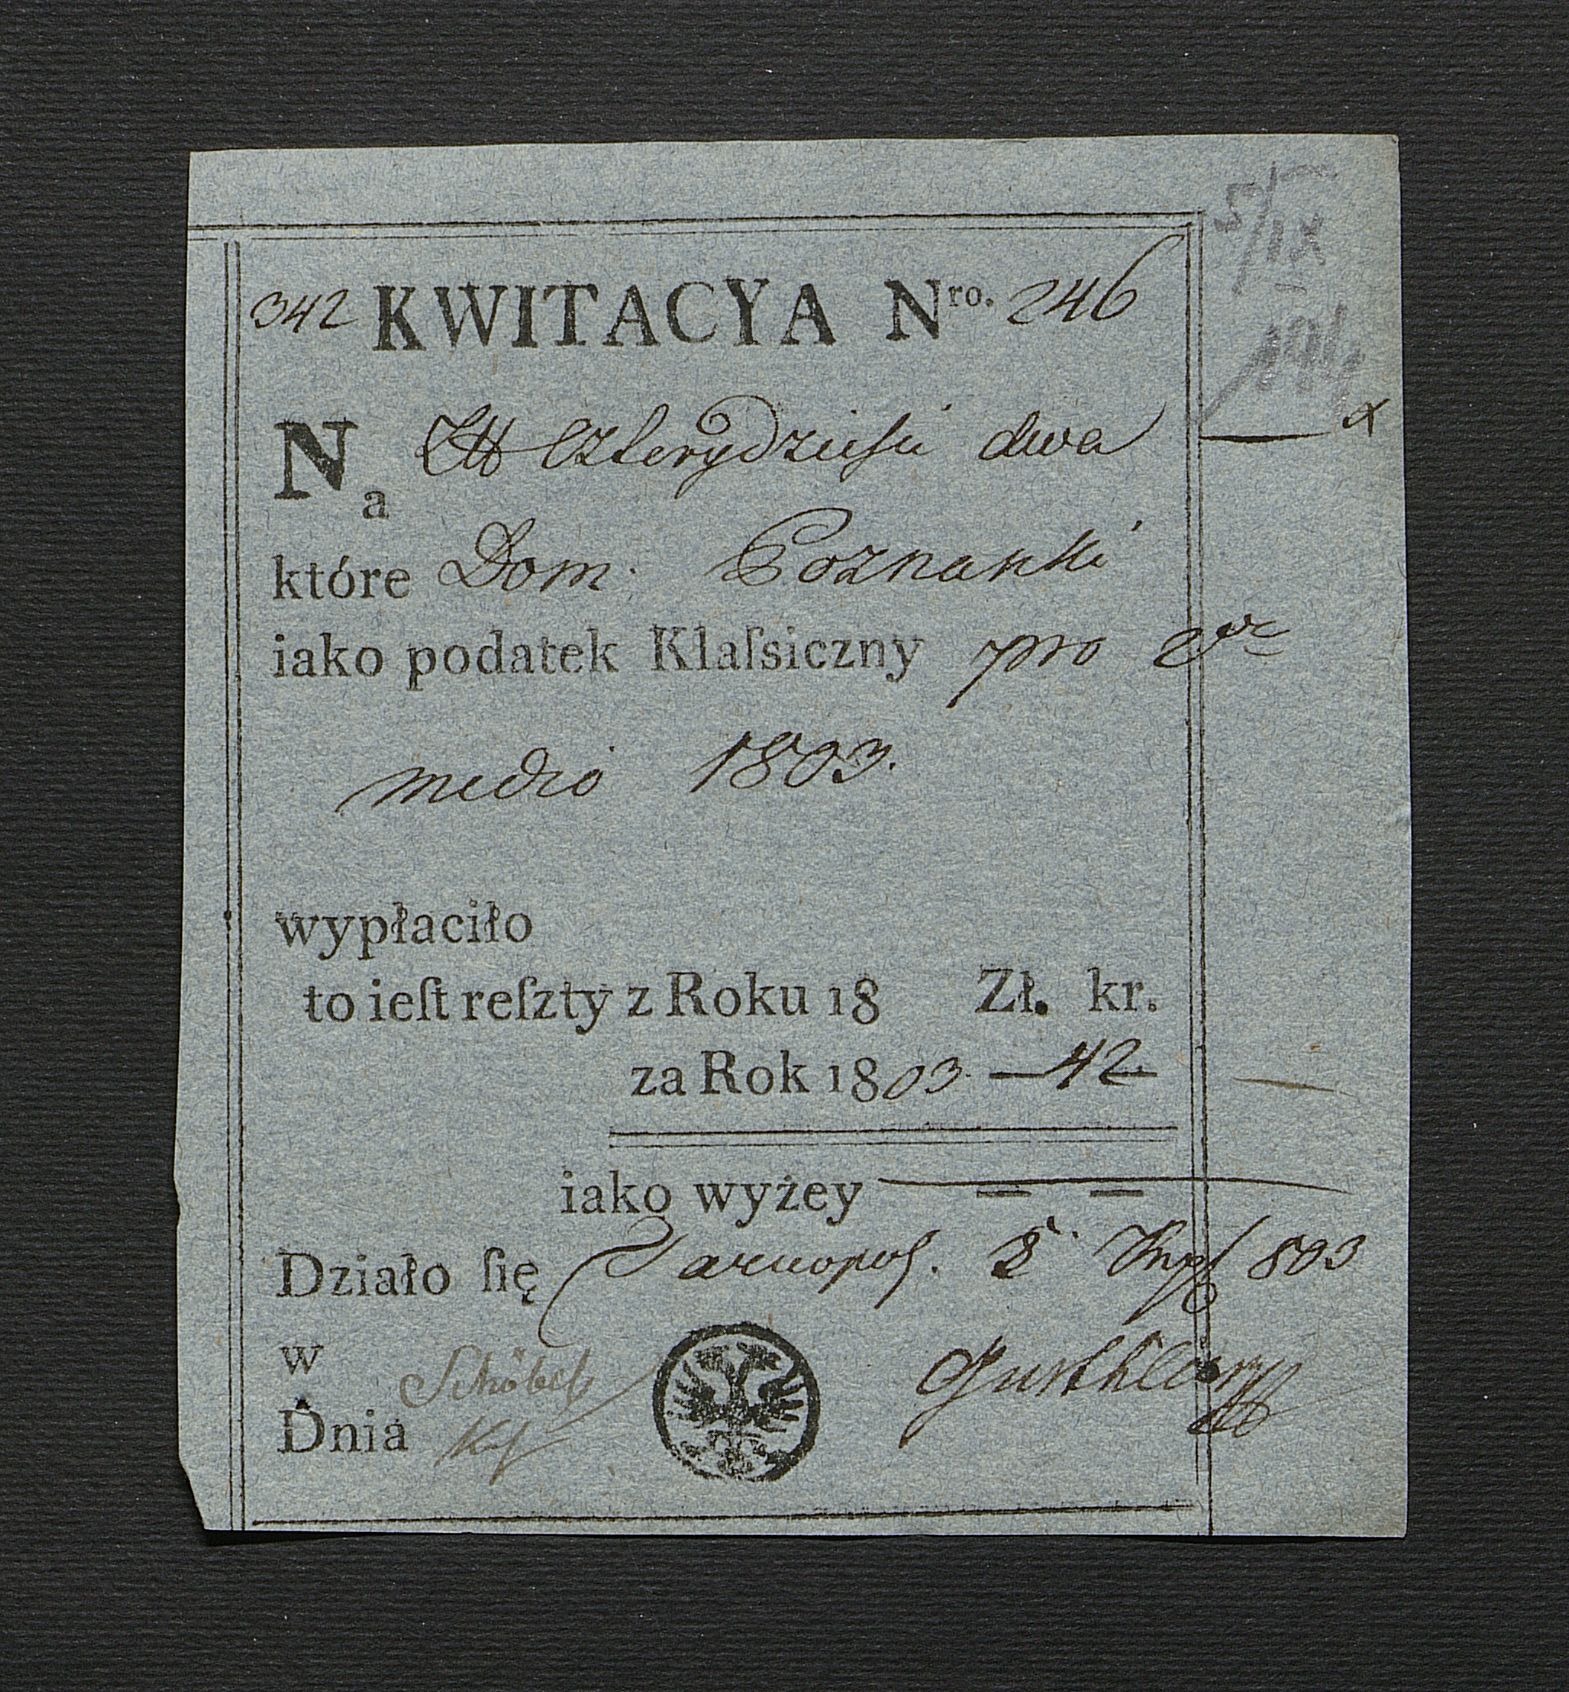 5/IX
342 KWITACYA Nro. 246
Na Czterydzieści dwa
które Dom. Poznanki
iako podatek Klaſsiczny pro 2do
medio 1803.
wypłaciło
to ieſt reſzty z Roku 18 Zł. kr.
za Rok 1803 — 42 —
iako wyżey — —
Działo ſię Tarnopol. 803
w
Dnia